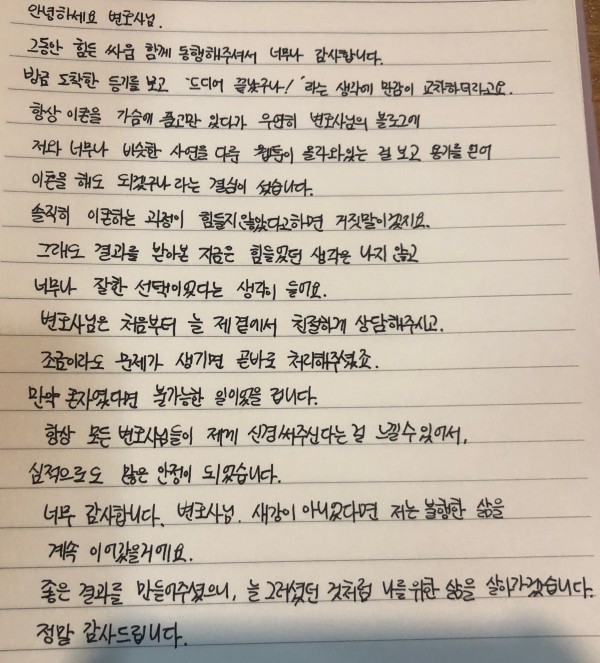 안녕하세요 변호사님.
그동안 힘든 싸움 함께 동행해주셔서 너무나 감사합니다.
방금 도착한 등기를 보고 "드디어 끝났구나!" 라는 생각에 만감이 교차하더라고요.
항상 이혼을 가슴에 품고만 있다가 우연히 변호사님의 블로그에
저와 너무나 비슷한 사연을 다룬 웹툰이 올라와있는 걸 보고 용기를 얻어
이혼을 해도 되겠구나 라는 결심이 섰습니다.
솔직히 이혼하는 과정이 힘들지 않았다고하면 거짓말이겠지요.
그래도 결과를 받아본 지금은 힘들었던 생각은 나지 않고
너무나 잘한 선택이었다는 생각이 들어요.
변호사님은 처음부터 늘 제 곁에서 친절하게 상담해주시고.
조금이라도 문제가 생기면 곧바로 처리해주셨죠.
만약 혼자였다면 불가능한 일이었을 겁니다.
항상 모든 변호사님들이 제게 신경써주신다는 걸 느낄 수 있어서,
심적으로도 많은 안정이 되었습니다.
너무 감사합니다. 변호사님. 새강이 아니었다면 저는 불행한 삶을
계속 이어갔을거에요.
좋은 결과를 만들어주셨으니, 늘 그러셨던 것처럼 나를 위한 삶을 살아가겠습니다.
정말 감사드립니다.